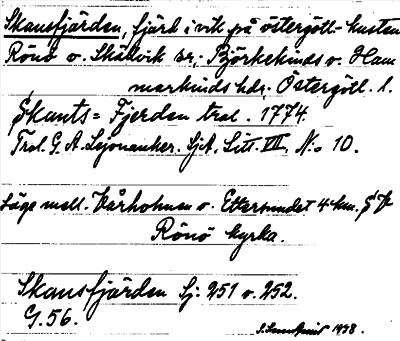 Skansfjärden, fjärd i vik på östergötl-kusten
Rönö o. Skällvik sn:- Björkekinds o. Ham
markinds hdr. Östergötl. l.
Skants= Fjerden tral. 1774.
Tral. G. A. Lejonanker. SjA. Litt. VII, No 10.
Läge mell. Vårholmen o. Ettersundet 4 km.
Rönö kyrka.
Skansfjärden Sj: 251 o. 252.
G. 56.
1938.